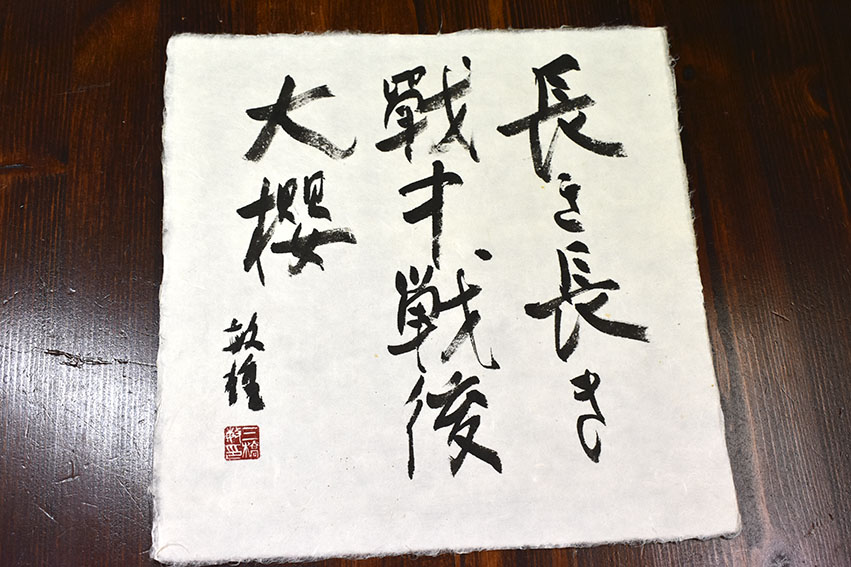 長き長き
戰中戦後
大櫻
敏雄
三橋敏印